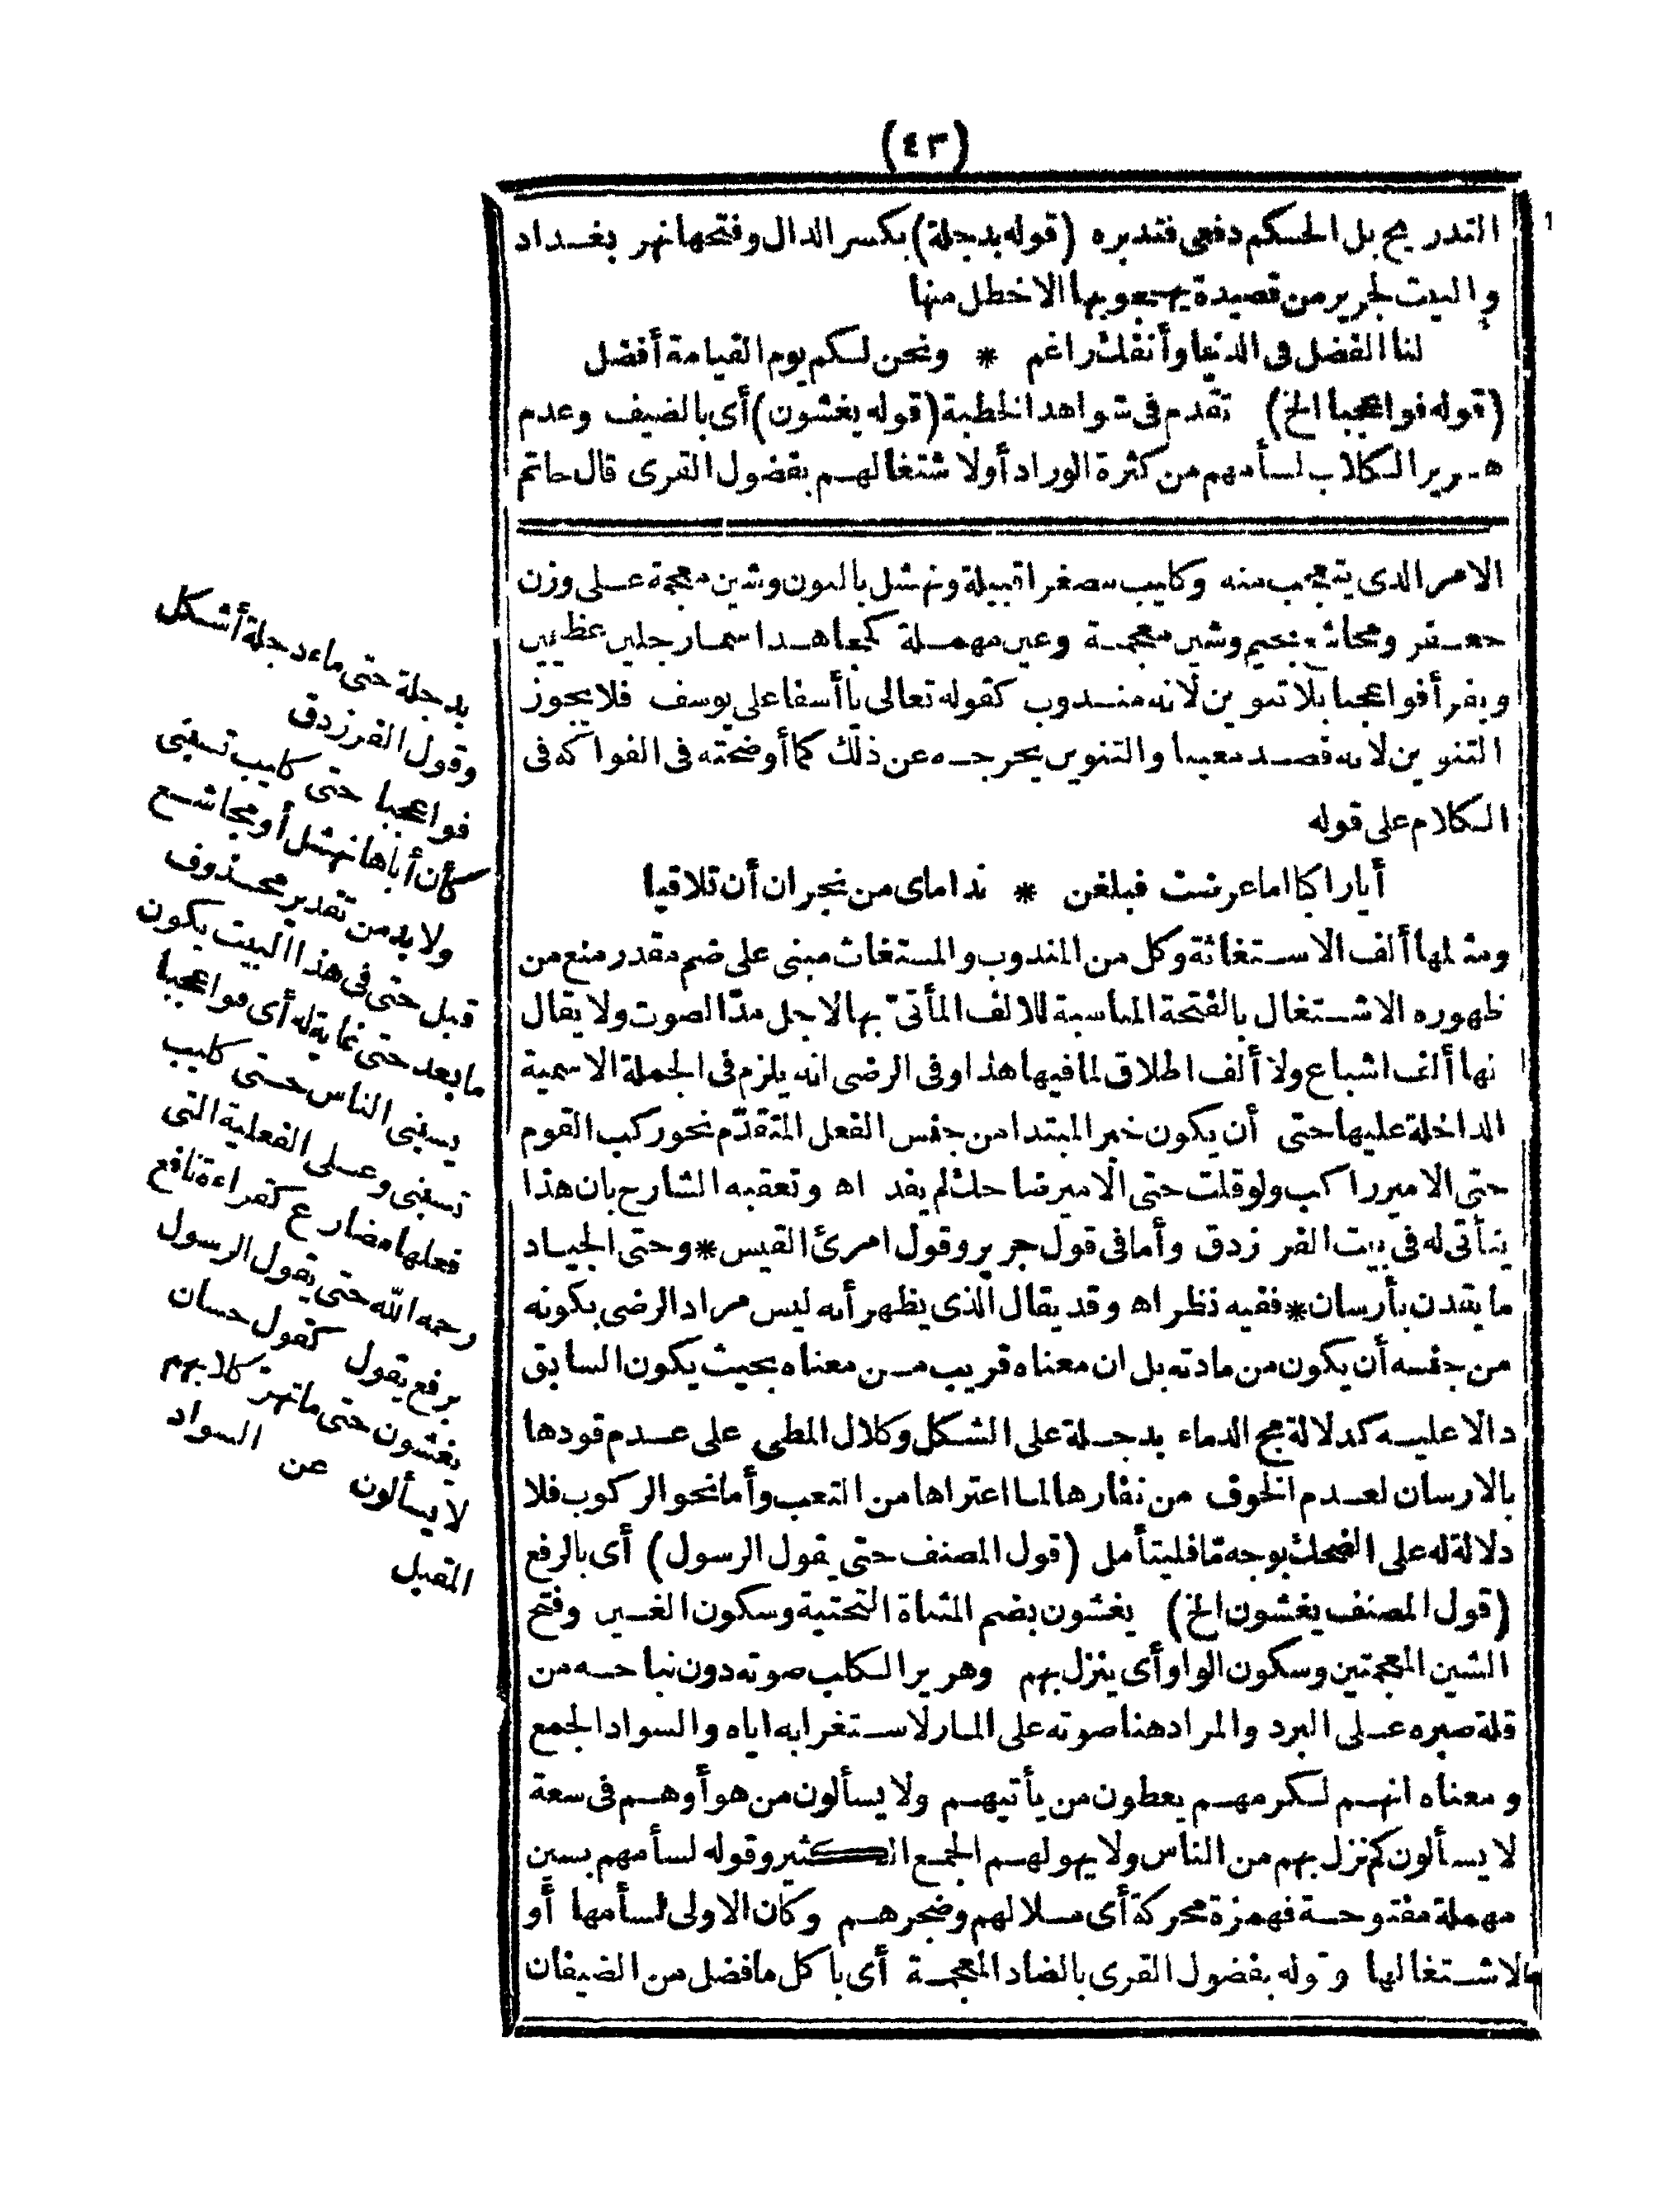 (٤٣)
التدريج بل الحكم دفعى فتدبره (قوله بدجلة) بكسر الدال وفتحها نهر بغداد
والبيت لجرير من قصيدة يهجو بها الاخطل منها
لنا الفضل فى الدنيا وأنفك راغم * ونحن لكم يوم القيامة أفضل
(قوله فواعجبا الخ) تقدم فى شواهد الخطبة (قوله يغشون) أى بالضيف وعدم
هرير الكلاب لسأمهم من كثرة الوراد أولاشتغالهم بفضول القرى قال حاتم
الامر الذى يتعجب منه وكليب مصغرا قبيلة ونهشل بالنون وشين معجمة على وزن
جعفر ومجاشع بجيم وشين معجمة وعين مهملة كجعاهد اسما رجلين عظيمين
ويقرأ فواعجبا بلا تنوين لانه مندوب كقوله تعالى ياأسفا على يوسف فلا يجوز
التنوين لانه قصد معينا والتنوين يخرجه عن ذلك كما أوضحته فى الفواكه فى
الكلام على قوله
أيا راكبا اما عرضت فبلغن * نداماى من نجران أن تلاقيا
ومثلها ألف الاستغاثة وكل من المندوب والمستغاث مبنى على ضم مقدر منع من
ظهوره الاشتغال بالفتحة المناسبة للالف المأتىّ بها لاجل مدّ الصوت ولا يقال
نها ألف اشباع ولا ألف اطلاق لما فيها هذا وفى الرضى انه يلزم فى الجملة الاسمية
الداخلة عليها حتى أن يكون خبر المبتدا من جنس الفعل المتقدّم نحو ركب القوم
حتى الامير راكب ولو قلت حتى الامير ضاحك لم يفد اه وتعقبه الشارح بان هذا
يتأتى له فى بيت الفرزدق وأما فى قول جرير وقول امرئ القيس * وحتى الجياد
ما يقدن بأرسان * ففيه نظر اه وقد يقال الذى يظهر أنه ليس مراد الرضى بكونه
من جنسه أن يكون من مادته بل ان معناه قريب من معناه بحيث يكون السابق
دالا عليه كدلالة مج الدماء بدجلة على الشكل وكلال المطى على عدم قودها
بالارسان لعدم الخوف من نفارها لما اعتراها من التعب وأما نحو الركوب فلا
دلالة له على الضحك بوجه مّا فليتأمل (قول المصنف حتى يقول الرسول) أى بالرفع
(قول المصنف يغشون الخ) يغشون بضم المثناة التحتية وسكون الغين وفتح
الشين المعجمتين وسكون الواو أى ينزل بهم وهرير الكلب صوته دون نباحه من
قلة صبره على البرد والمراد هنا صوته على المار لاستغرابه اياه والسواد الجمع
ومعناه انهم لكرمهم يعطون من يأتيهم ولا يسألون من هو أوهم فى سعة
لا يسألون كم نزل بهم من الناس ولا يهولهم الجمع الكثير وقوله لسأمهم بسين
مهملة مفتوحة فهمزة محركة أى مسلالهم وضجرهم وكان الاولى لسأمها أو
لاشتغالها وقوله بفضول القرى بالضاد المعجمة أى با كل ما فضل من الضيفان
بدجلة حتى ماء دجلة أشكل
وقول الفرزدق
فواعجبا حتى كليب تسبنى
كأن أباها نهشل أو مجاشع
ولا بد من تقدير محذوف
قبل حتى فى هذا البيت يكون
ما بعد حتى غاية له أى فواعجبا
يسبنى الناس حتى كليب
تسبنى وعلى الفعلية التى
فعلها مضارع كقراءة نافع
رحمه الله حتى يقول الرسول
برفع يقول كقول حسان
يغشون حتى ما تهرّ كلابهم
لا يسألون عن السواد
المقبل